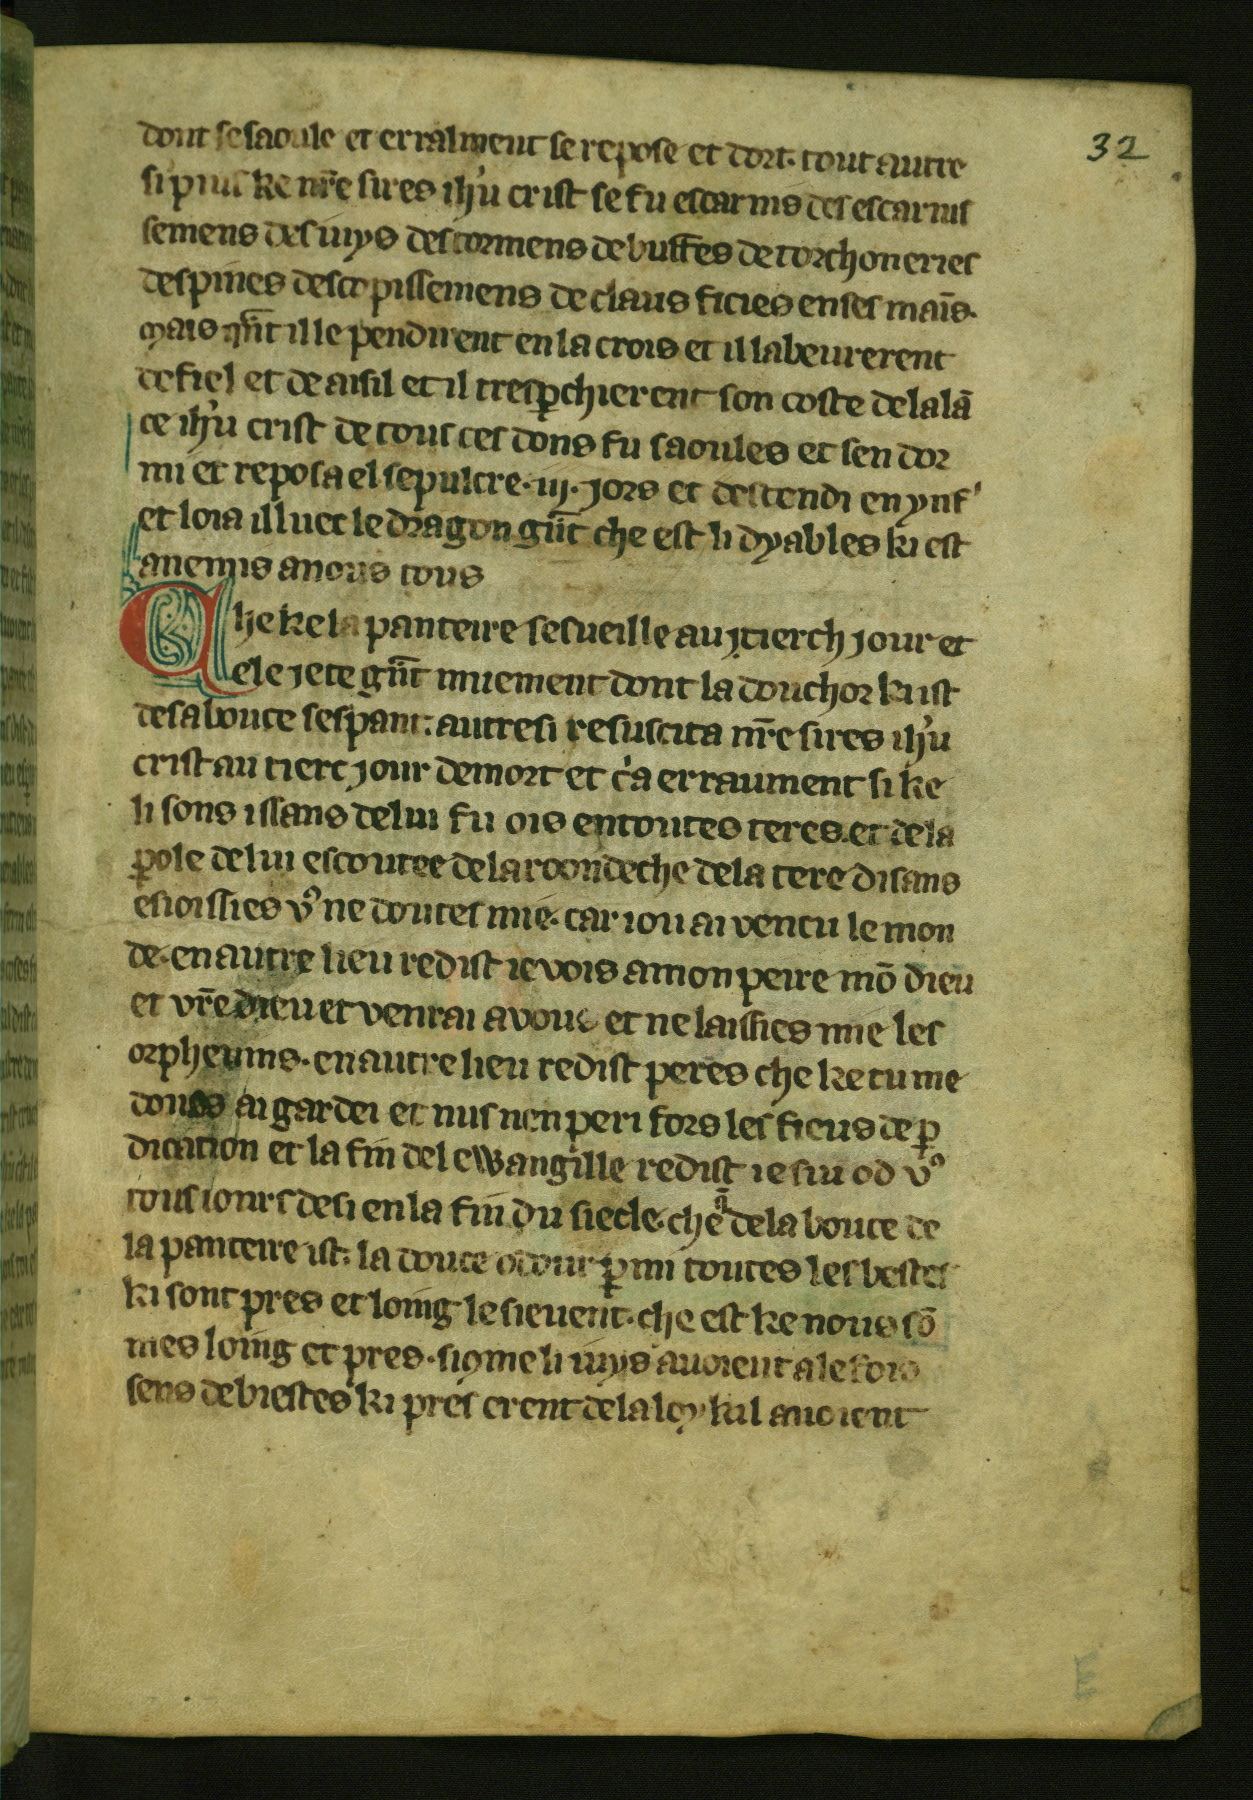 32
dont se saoule et erralment se repose et dort. tout autre
si puis ke nr̄e sires ih'u crist se fu escarnis des escarnis
semens des iuys des tormens de buffes de torchoneries
despines descopissemens de claus ficies en ses maīs.
Mais qn̄t il le pendirent en la crois et il labeurerent
de fiel et de aisil et il tresꝑchierent son coste de la lā
ce ih'u crist de tous ces dons fu saoules et sen dor
mi et reposa el sepulcre .iij. jors et descendi en ynf'
et loia illuec le dragon gn̄t che est li dyables ki est
anemis a nous tous
Che ke la panteire sesueille au tierch jour et
ele jete gn̄t muiement dont la douchor ki ist
de sa bouce sespant. autresi resuscita nr̄e sires ih'u
crist au tierc jour de mort et c'a erraument si ke
li sons issans de lui fu ois en toutes teres. et de la
ꝑole de lui escoutee de la roondeche de la tere disans
esioissies vꝰ ne doutes mie. car iou ai vencu le mon
de. en autre lieu redist ie vois a mon peire mō dieu
et vr̄e dieu et venrai a vous et ne laissies mie les
orphenins. en autre lieu redist peres che ke tu me
dones ai gardei et nus nen peri fors les fieus de ꝑ
dication et la fin del ewangille redist ie sui od vꝰ
tous iours desi en la fin du siecle. che q̄ de la bouce de
la panteire ist. la douce odour ꝑmi toutes les bestes
ki sont pres et loing le sieuent. che est ke nous sō
mes loing et pres. si ꝯme li iuys auoient a le fois
sens de biestes ki pres erent de la loy kil auoient